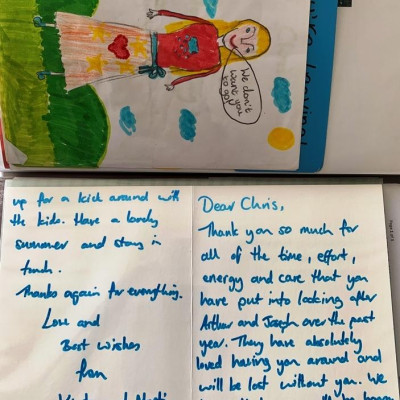 We don't
want you
to go!
Dear Chris,
Thank you so much for
all of the time, effort,
energy and care that you
have put into looking after
Arthur and Joseph over the past
year. They have absolutely
loved having you around and
will be lost without you. We
up for a kick around with
the kids. Have a lovely
summer and stay in
touch.
Thanks again for everything.
Love and
Best wishes
from